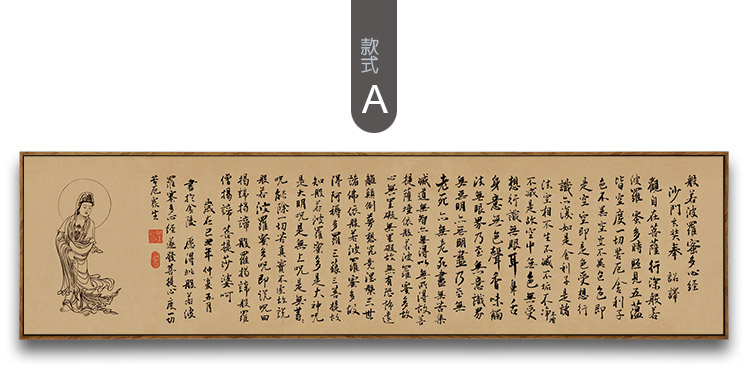 款式
A
般若波羅蜜多心經
沙門玄奘奉 詔譯
觀自在菩薩行深般若
波羅蜜多時照見五蘊
皆空度一切苦厄舍利子
色不異空空不異色色即
是空空即是色受想行
識亦復如是舍利子是諸
法空相不生不滅不垢不淨不增
不減是故空中無色無受
想行識無眼耳鼻舌
身意無色聲香味觸
法無眼界乃至無意識界
無無明亦無無明盡乃至無
老死亦無老死盡無苦集
滅道無智亦無得以無所得故菩
提薩埵依般若波羅蜜多故
心無罣礙無罣礙故無有恐怖遠
離顛倒夢想究竟涅槃三世
諸佛依般若波羅蜜多故
得阿耨多羅三藐三菩提故
知般若波羅蜜多是大神咒
是大明咒是無上咒是無等等
咒能除一切苦真實不虛故說
般若波羅蜜多咒即說咒曰
揭諦揭諦般羅揭諦般羅
僧揭諦菩提莎婆呵
歲在己丑年仲夏五月
書於金陵 願得此般若波
羅蜜多心經遂發菩提心度一切
苦厄衆生